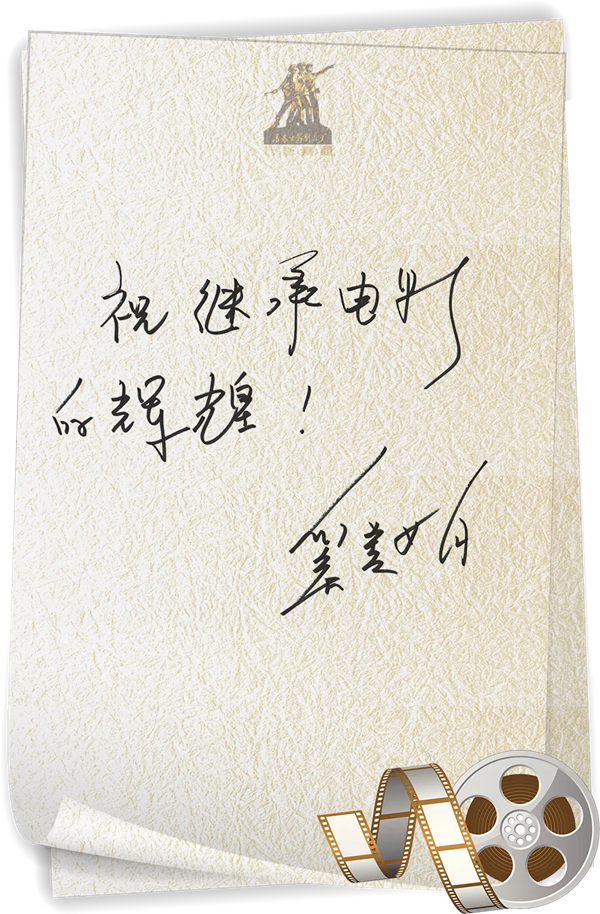 祝继承电影
的辉煌！
奚美娟